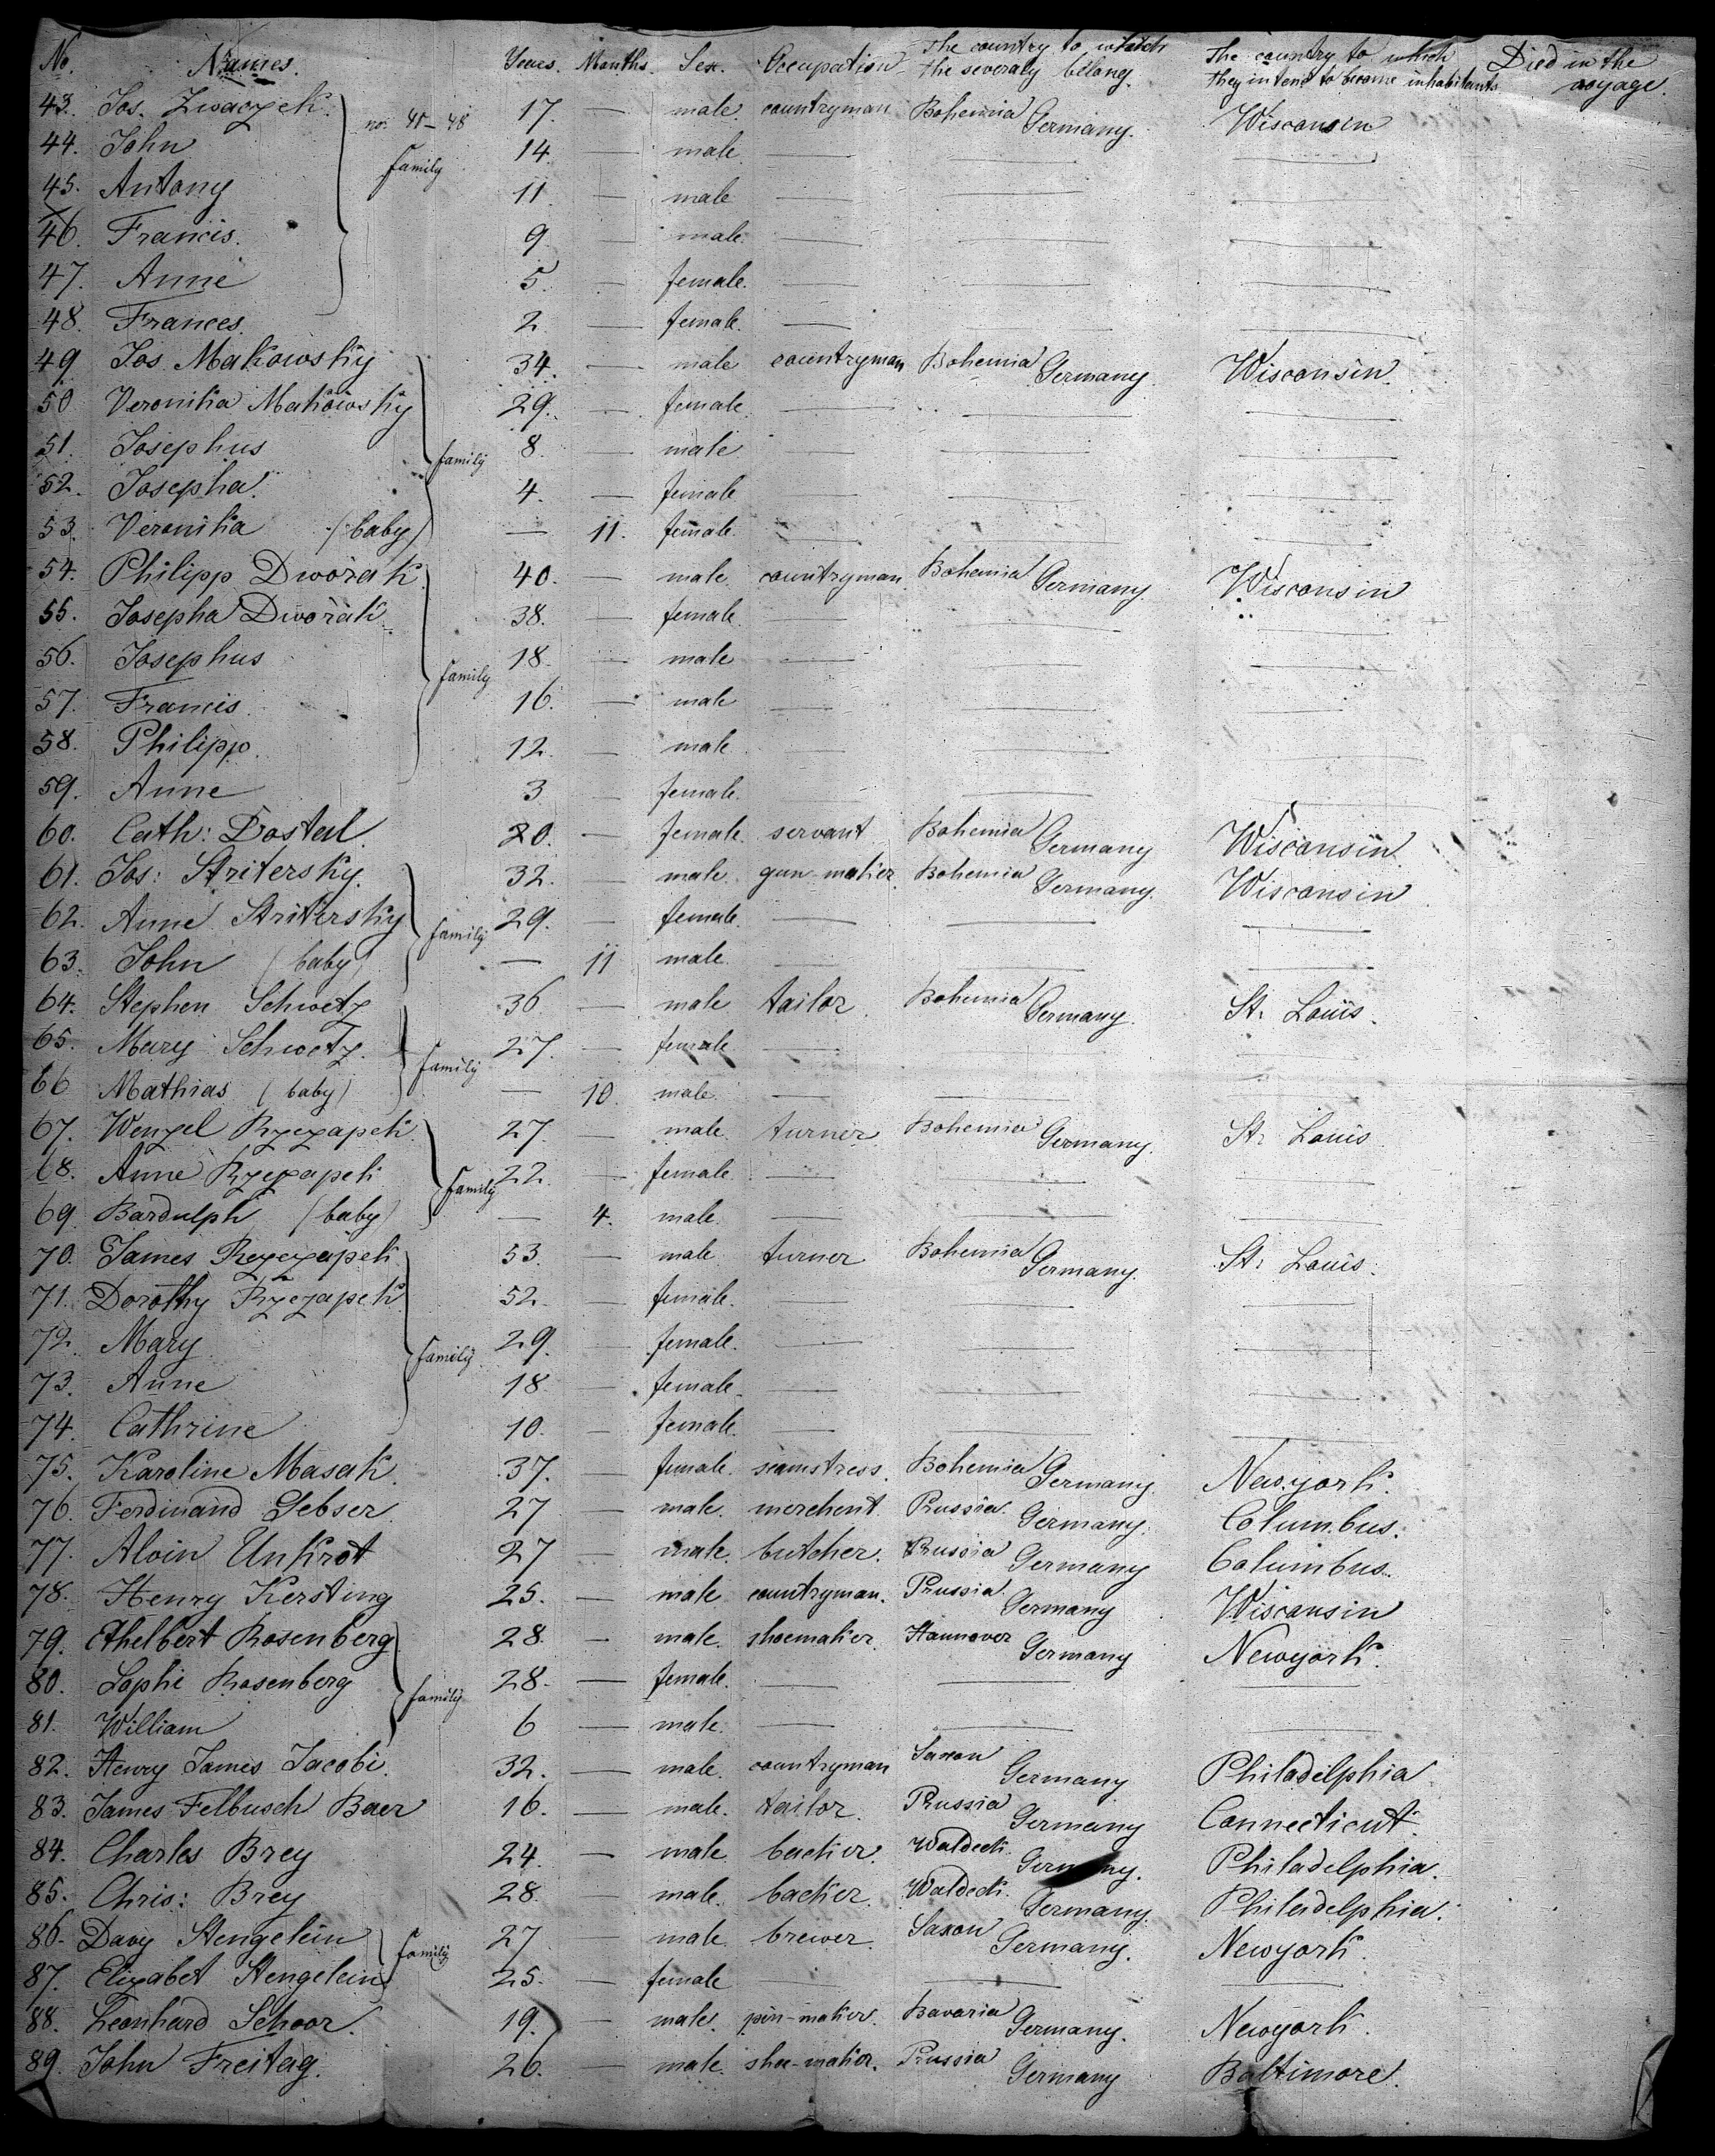 No. Names. Years. Months. Sex. Occupation The country to which the severaly belong. The country to which they intend to become inhabitants Died in the voyage.
43. Jos. Zwaczek. no. 41-48 family 17. — male. countryman Bohemia Germany. Wisconsin
44. John 14. — male. — — —
45. Antony 11. — male — — —
46. Francis. 9. — male. — — —
47. Anne 5. — female. — — —
48. Frances. 2. — female. — — —
49 Jos. Makowsky 34. — male countryman Bohemia Germany. Wisconsin.
50 Veronika Makowsky 29. — female. — — —
51. Josephus family 8. — male — — —
52. Josepha. 4. — female — — —
53. Veronika (baby) — 11. female. — — —
54. Philipp Dworak. 40. — male. countryman. Bohemia Germany. Wisconsin
55. Josepha Dworak. 38. — female. — — —
56. Josephus family 18. — male — — —
57. Francis. 16. — male — — —
58. Philipp. 12. — male — — —
59. Anne 3 — female. — — —
60. Cath: Dostal. 20. — female. servant Bohemia Germany Wisconsin
61. Jos: Stritersky. 32. — male. gun-maker. Bohemia Germany. Wisconsin
62. Anne Stritersky family 29. — female. — — —
63. John (baby) — 11 male. — — —
64. Stephen Schwetz 36 — male tailor. Bohemia Germany. St. Louis.
65. Mary Schwetz. family 27. — female — — —
66 Mathias (baby) — 10. male. — — —
67. Wenzel Rzezapek. 27. — male. turner. Bohemia Germany. St. Louis
68. Anne Rzezapek family 22. — female. — — —
69. Bardulph (baby) — 4. male. — — —
70. James Rzezapek 53. — male turner Bohemia Germany. St. Louis.
71. Dorothy Rzezapek 52. — female. — — —
72. Mary family 29. — female. — — —
73. Anne 18 — female. — — —
74. Cathrine 10. — female. — — —
75. Karoline Masak. 37. — female. seamstress. Bohemia Germany Newyork.
76. Ferdinand Gebser. 27 — male. merchent. Prussia. Germany. Columbus.
77. Aloin Unkrot 27 — male. butcher. Prussia Germany Columbus.
78. Henry Kersting 25. — male countryman. Prussia. Germany Wisconsin
79. Ethelbert Rosenberg 28. — male. shoemaker. Hannover Germany Newyork.
80. Sophi Rosenberg family 28. — female. — — —
81. William 6 — male. — — —
82. Henry James Jacobi. 32. — male. countryman Saxon Germany Philadelphia
83. James Felbusch Baer 16. — male. tailor. Prussia Germany Connecticut.
84. Charles Brey 24. — male backer. Waldeck. Germany. Philadelphia.
85. Chris: Brey 28. — male. backer. Waldeck. Germany. Philadelphia.
86. Davy Stengelein family 27 — male brewer. Saxon Germany. Newyork.
87. Elizabet Stengelein 25. — female — — —
88. Leonhard Schoor. 19. — male. pin-maker. Bavaria Germany. Newyork.
89. John Freitag. 26. — male. shoe-maker. Prussia Germany Baltimore.